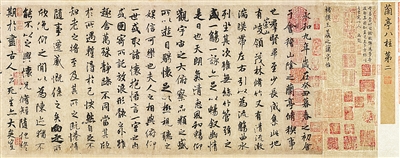 蘭亭八柱第二
褚模王羲之蘭亭帖
永和九年歲在癸丑暮春之初會
于會稽山陰之蘭亭脩稧事
也羣賢畢至少長咸集此地
有崇山峻領茂林脩竹又有清流激
湍暎帶左右引以為流觴曲水
列坐其次雖無絲竹管弦之
盛一觴一詠亦足以暢敘幽情
是日也天朗氣清惠風和暢仰
觀宇宙之大俯察品類之盛
所以遊目騁懷足以極視聽之
娛信可樂也夫人之相與俯仰
一世或取諸懷抱悟言一室之內
或因寄所託放浪形骸之外雖
趣舍萬殊靜躁不同當其欣
於所遇蹔得於己怏然自足不
知老之將至及其所之既惓情
隨事遷感慨係之矣向之所
欣俛仰之閒以為陳迹猶不
能不以之興懷況脩短隨化終
期於盡古人云死生亦大矣豈